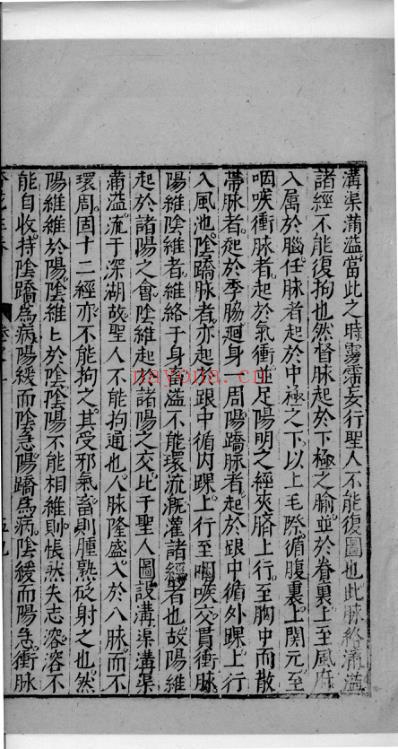 溝渠滿溢當此之時霧霈妄行聖人不能復圖也此脉絡滿溢
諸經不能復拘也然督脉起於下極之腧並於脊裏上至風府
入屬於腦任脉者起於中極之下以上毛際循腹裏上關元至
咽喉衝脉者起於氣衝並足陽明之經夾臍上行至胸中而散
帶脉者起於季脇廻身一周陽蹻脉者起於跟中循外踝上行
入風池陰蹻脉者亦起於跟中循內踝上行至咽喉交貫衝脉
陽維陰維者維絡于身溢不能環流溉灌諸經者也故陽維
起於諸陽之會陰維起於諸陽之交比于聖人圖設溝渠溝渠
滿溢流于深湖故聖人不能拘通也人脉隆盛入於八脉而不
環周固十二經亦不能拘之其受邪氣畜則腫熟砭射之也然
陽維維於陽陰維上於陰陰陽不能相維則悵然失志溶溶不
能自收持陰蹻為病陽緩而陰急陽蹻為病陰緩而陽急衝脉
nayona.cn